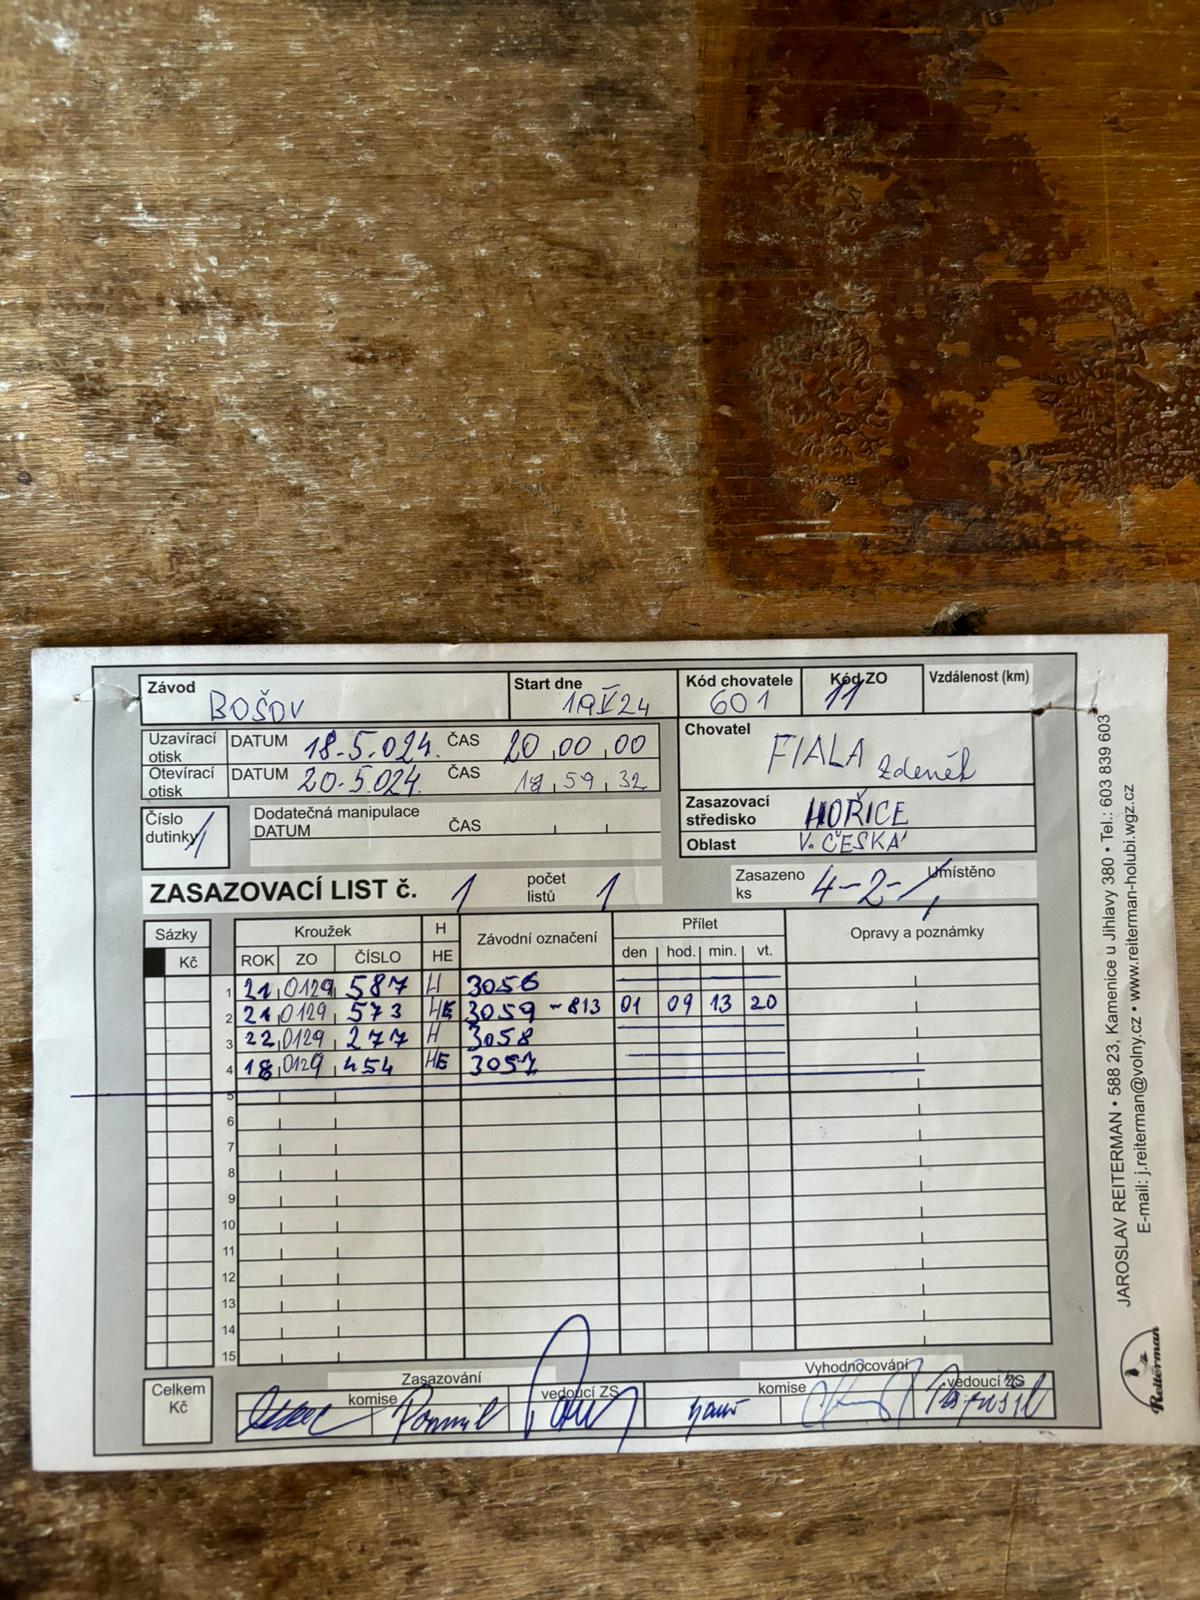 Závod BOŠOV Start dne 19 V 24 Kód chovatele 601 Kód ZO 11 Vzdálenost (km)
Uzavírací otisk DATUM 18.5.024. ČAS 20,00,00
Otevírací otisk DATUM 20.5.024. ČAS 18,59,32
Chovatel FIALA Zdeněk
Zasazovací středisko HOŘICE
Oblast V. ČESKÁ
Číslo dutinky 1
Dodatečná manipulace
DATUM ČAS
ZASAZOVACÍ LIST č. 1 počet listů 1 Zasazeno ks 4-2-1 Umístěno
Sázky Kroužek H Závodní označení Přílet Opravy a poznámky
Kč ROK ZO ČÍSLO HE den hod. min. vt.
1 21 0129 587 H 3056
2 21 0129 573 HE 3059 - 813 01 09 13 20
3 22 0129 277 H 3058
4 18 0129 454 HE 3057
5
6
7
8
9
10
11
12
13
14
15
Celkem Kč
Zasazování Vyhodnocování
komise vedoucí ZS komise vedoucí ZS
JAROSLAV REITERMAN • 588 23, Kamenice u Jihlavy 380 • Tel.: 603 839 603
E-mail: j.reiterman@volny.cz • www.reiterman-holubi.wgz.cz
Reiterman